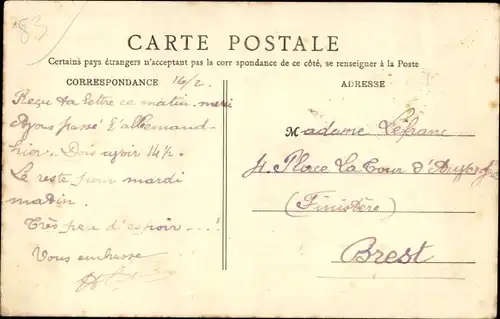 83
CARTE POSTALE
Certains pays étrangers n'acceptant pas la corr spondance de ce côté, se renseigner à la Poste
CORRESPONDANCE 16/2
ADRESSE
Reçu ta lettre ce matin. merci
Avons passé l'allemand
hier. Dois avoir 14½
Le reste pour mardi
matin.
Très peu d'espoir...!
Vous embrasse
Madame Lefranc
4. Place La Tour d'Auvergne
(Finistère)
Brest